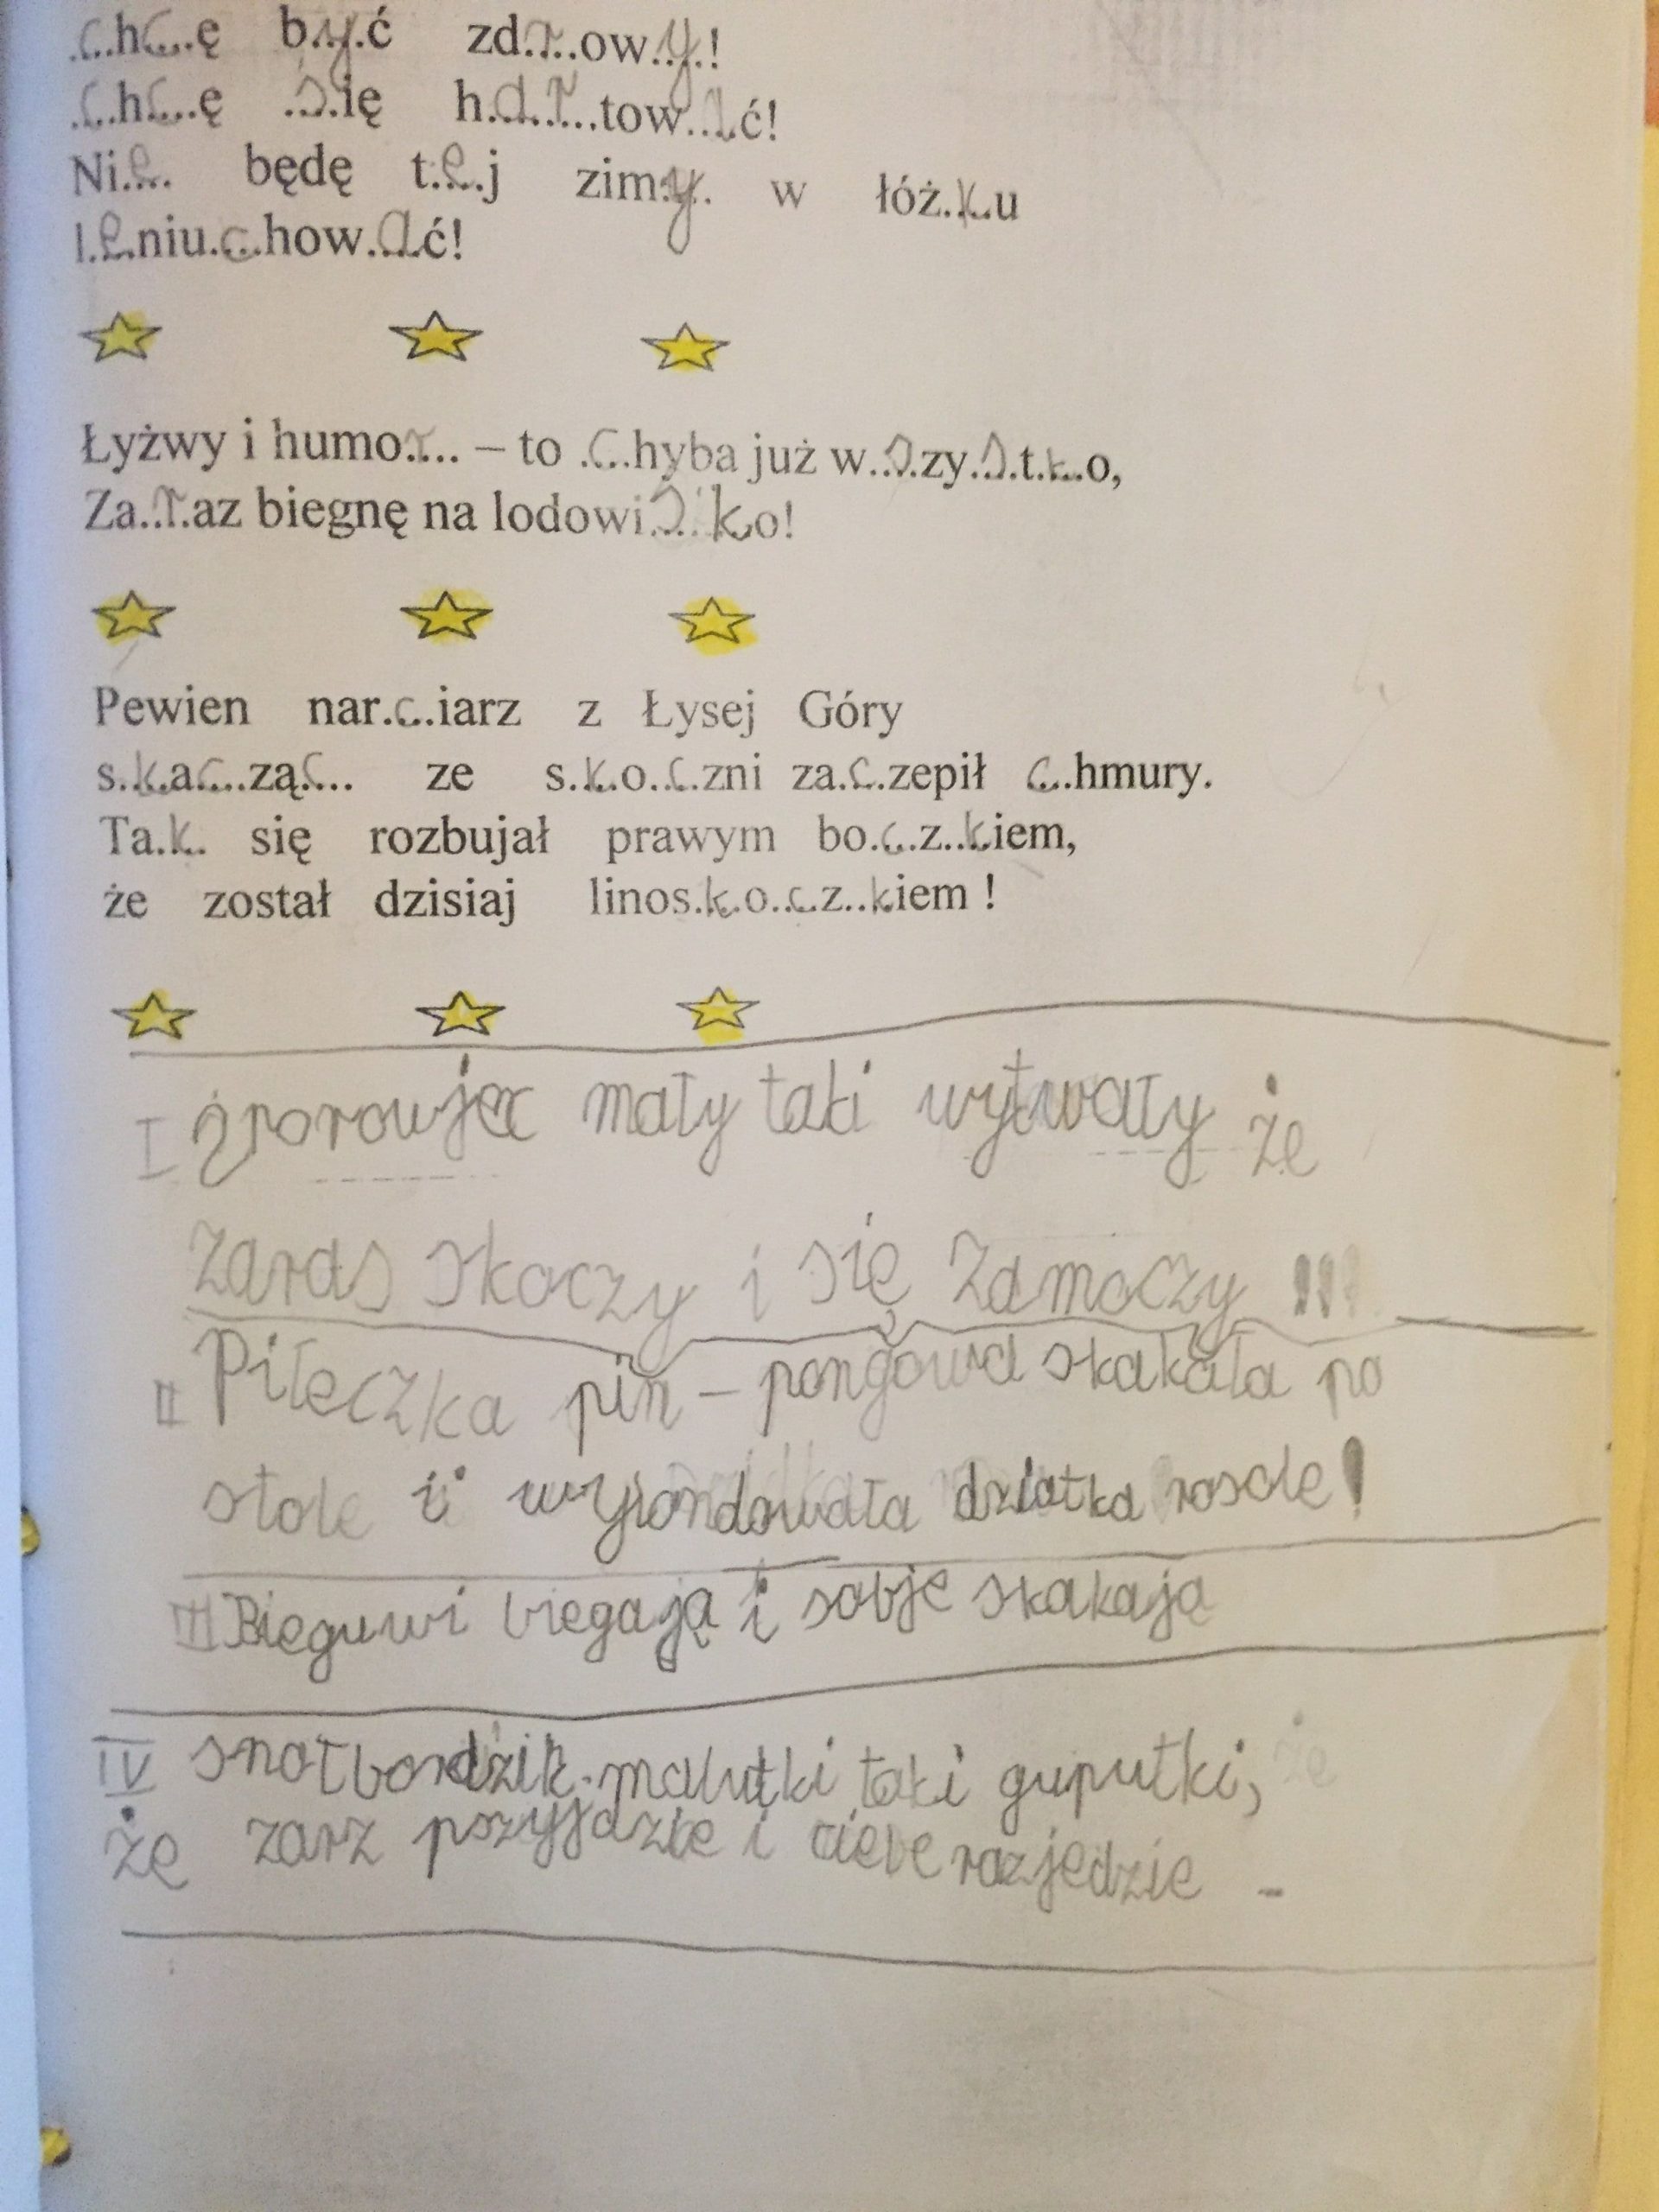 .c..hc...ę b.y.ć zd.r..ow.y.!
.c..hc...ę .s.ię h.a.r...tow..a.ć!
Ni.e.. będę t.e.j zim.y. w łóż.k.u
l.e.niu.c.how.a.ć!
Łyżwy i humo.r... – to .c..hyba już w..s.zy.s.t.k.o,
Za..r.az biegnę na lodowi.s..ko!
Pewien nar.c..iarz z Łysej Góry
s.k.ac...ząc... ze s.k.o..c.zni za.c.zepił c..hmury.
Ta.k. się rozbujał prawym bo.c.z..kiem,
że został dzisiaj linos.k.o..c.z..kiem !
I mały taki wytwały że
zaras skoczy i się zamoczy !!!
II Piłeczka pin – pongowa skakała po
stole i wyrondowała dziatka rosole!
III Bieguwi biegają i sobje skakają
IV snołbordzik malutki taki guputki,
że zarz pszyjdzie i ciebe razjedzie -